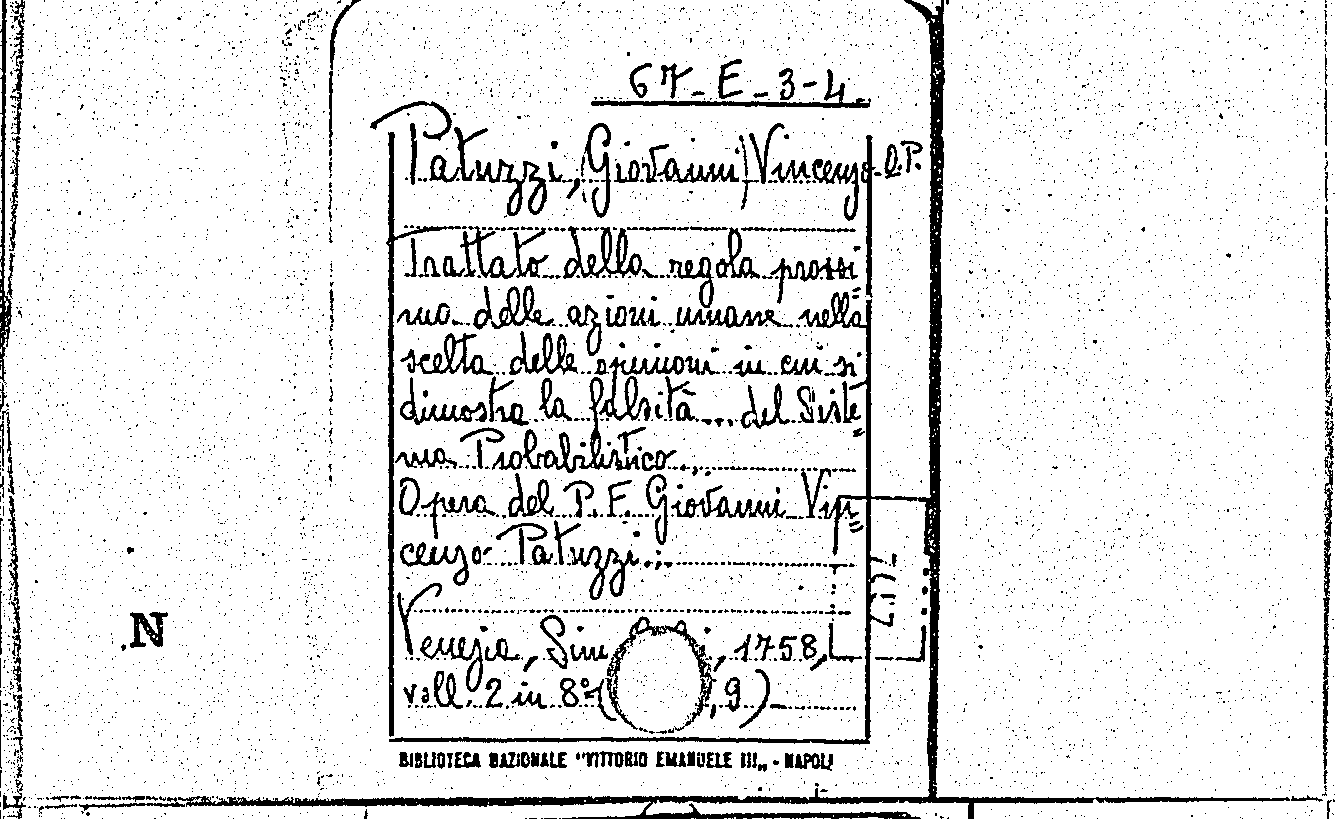 67-E-3-4.
Patuzzi, (Giovanni) Vincenzo O.P.
Trattato della regola prossi=
ma delle azioni umane nella
scelta delle opinioni in cui si
dimostra la falsità ... del Siste=
ma Probabilistico ...
Opera del P. F. Giovanni Vin=
cenzo Patuzzi ...
N
Venezia, Sim i, 1758,
voll. 2 in 8° ( , 9)
BIBLIOTECA NAZIONALE "VITTORIO EMANUELE III" - NAPOLI